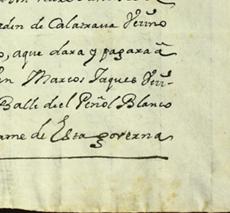 rden de Calatraua Vezino
o, aque dara y pagara â
n Marcos Jaques Vezi-
Balle de el Peñol Blanco
ame de Esta governa